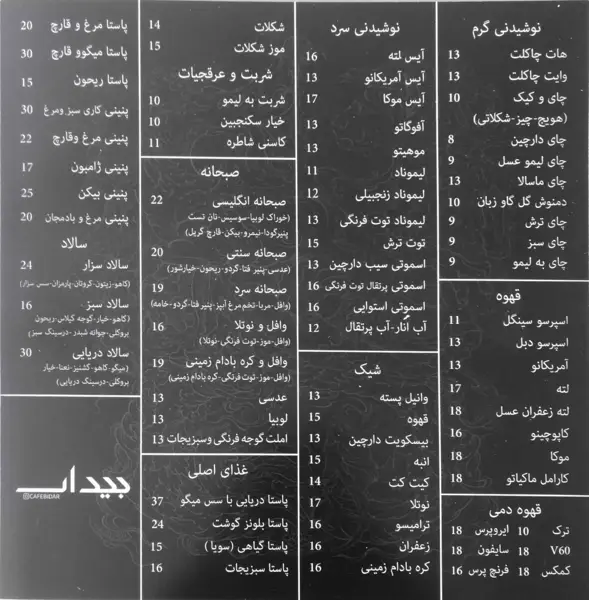 نوشیدنی گرم
هات چاکلت 13
وایت چاکلت 13
چای و کیک 10
(هویج-چیز-شکلاتی)
چای دارچین 8
چای لیمو عسل 9
چای ماسالا 13
دمنوش گل گاو زبان 10
چای ترش 9
چای سبز 9
چای به لیمو 9
قهوه
اسپرسو سینگل 11
اسپرسو دبل 13
آمریکانو 13
لته 17
لته زعفران عسل 18
کاپوچینو 16
موکا 18
کارامل ماکیاتو 18
قهوه دمی
ترک 10 ایروپرس 18
V60 18 سایفون 18
کمکس 18 فرنچ پرس 16
نوشیدنی سرد
آیس لته 16
آیس آمریکانو 13
آیس موکا 17
آفوگاتو 13
موهیتو 13
لیموناد 11
لیموناد زنجبیلی 12
لیموناد توت فرنگی 13
توت ترش 15
اسموتی سیب دارچین 13
اسموتی پرتقال توت فرنگی 16
اسموتی استوایی 16
آب انار-آب پرتقال 12
شیک
وانیل پسته 13
قهوه 15
بیسکویت دارچین 13
انبه 15
کیت کت 14
نوتلا 17
ترامیسو 16
زعفران 16
کره بادام زمینی 16
شکلات 14
موز شکلات 15
شربت و عرقجیات
شربت به لیمو 10
خیار سکنجبین 10
کاسنی شاطره 11
صبحانه
صبحانه انگلیسی 22
(خوراک لوبیا-سوسیس-نان تست
پنیرگودا-نیمرو-بیکن-قارچ گریل)
صبحانه سنتی 20
(عدسی-پنیر فتا-گردو-ریحون-خیارشور)
صبحانه سرد 19
(وافل-مربا-تخم مرغ آبپز-پنیر فتا-گردو-خامه)
وافل و نوتلا 16
(وافل-موز-توت فرنگی-نوتلا)
وافل و کره بادام زمینی 19
(وافل-موز-توت فرنگی-کره بادام زمینی)
عدسی 13
لوبیا 13
املت گوجه فرنگی و سبزیجات 13
غذای اصلی
پاستا دریایی با سس میگو 37
پاستا بلونز گوشت 24
پاستا گیاهی (سویا) 15
پاستا سبزیجات 16
پاستا مرغ و قارچ 20
پاستا میگوو قارچ 30
پاستا ریحون 15
پنینی کاری سبز ومرغ 30
پنینی مرغ وقارچ 22
پنینی ژامبون 17
پنینی بیکن 25
پنینی مرغ و بادمجان 20
سالاد
سالاد سزار 24
(کاهو-زیتون-کروتان-پارمزان-سس سزار)
سالاد سبز 16
(کاهو-خیار-گوجه گیلاس-ریحون
بروکلی-جوانه شبدر-درسینگ سبز)
سالاد دریایی 30
(میگو-کاهو-گشنیز-نعنا-خیار
بروکلی-درسینگ دریایی)
بیدار
@CAFEBIDAR